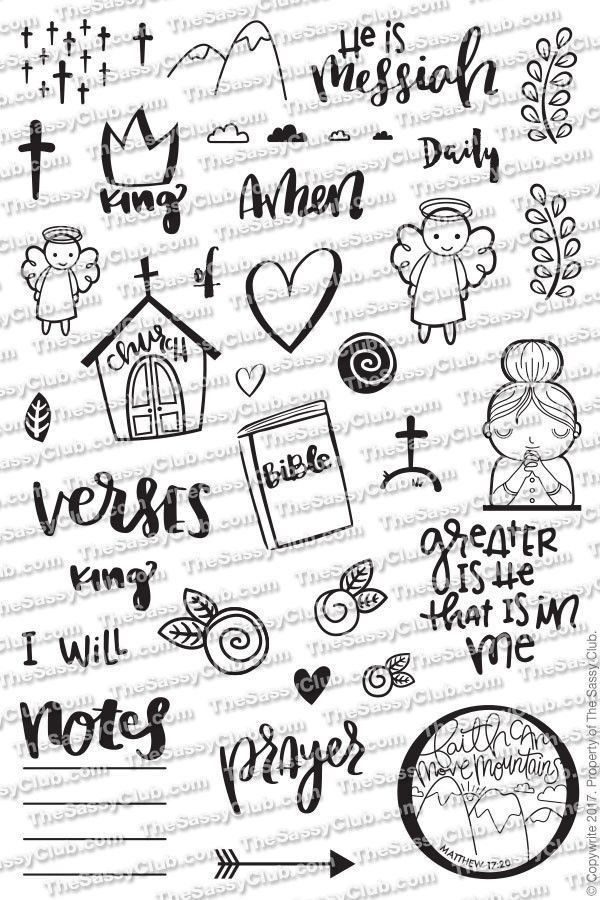 He is
Messiah
Daily
King
Amen
of
Church
Bible
Verses
King
greater
is He
that is in
me
I will
Notes
prayer
faith can
move mountains
MATTHEW 17:20
© Copywrite 2017. Property of The Sassy Club.
TheSassyClub.com